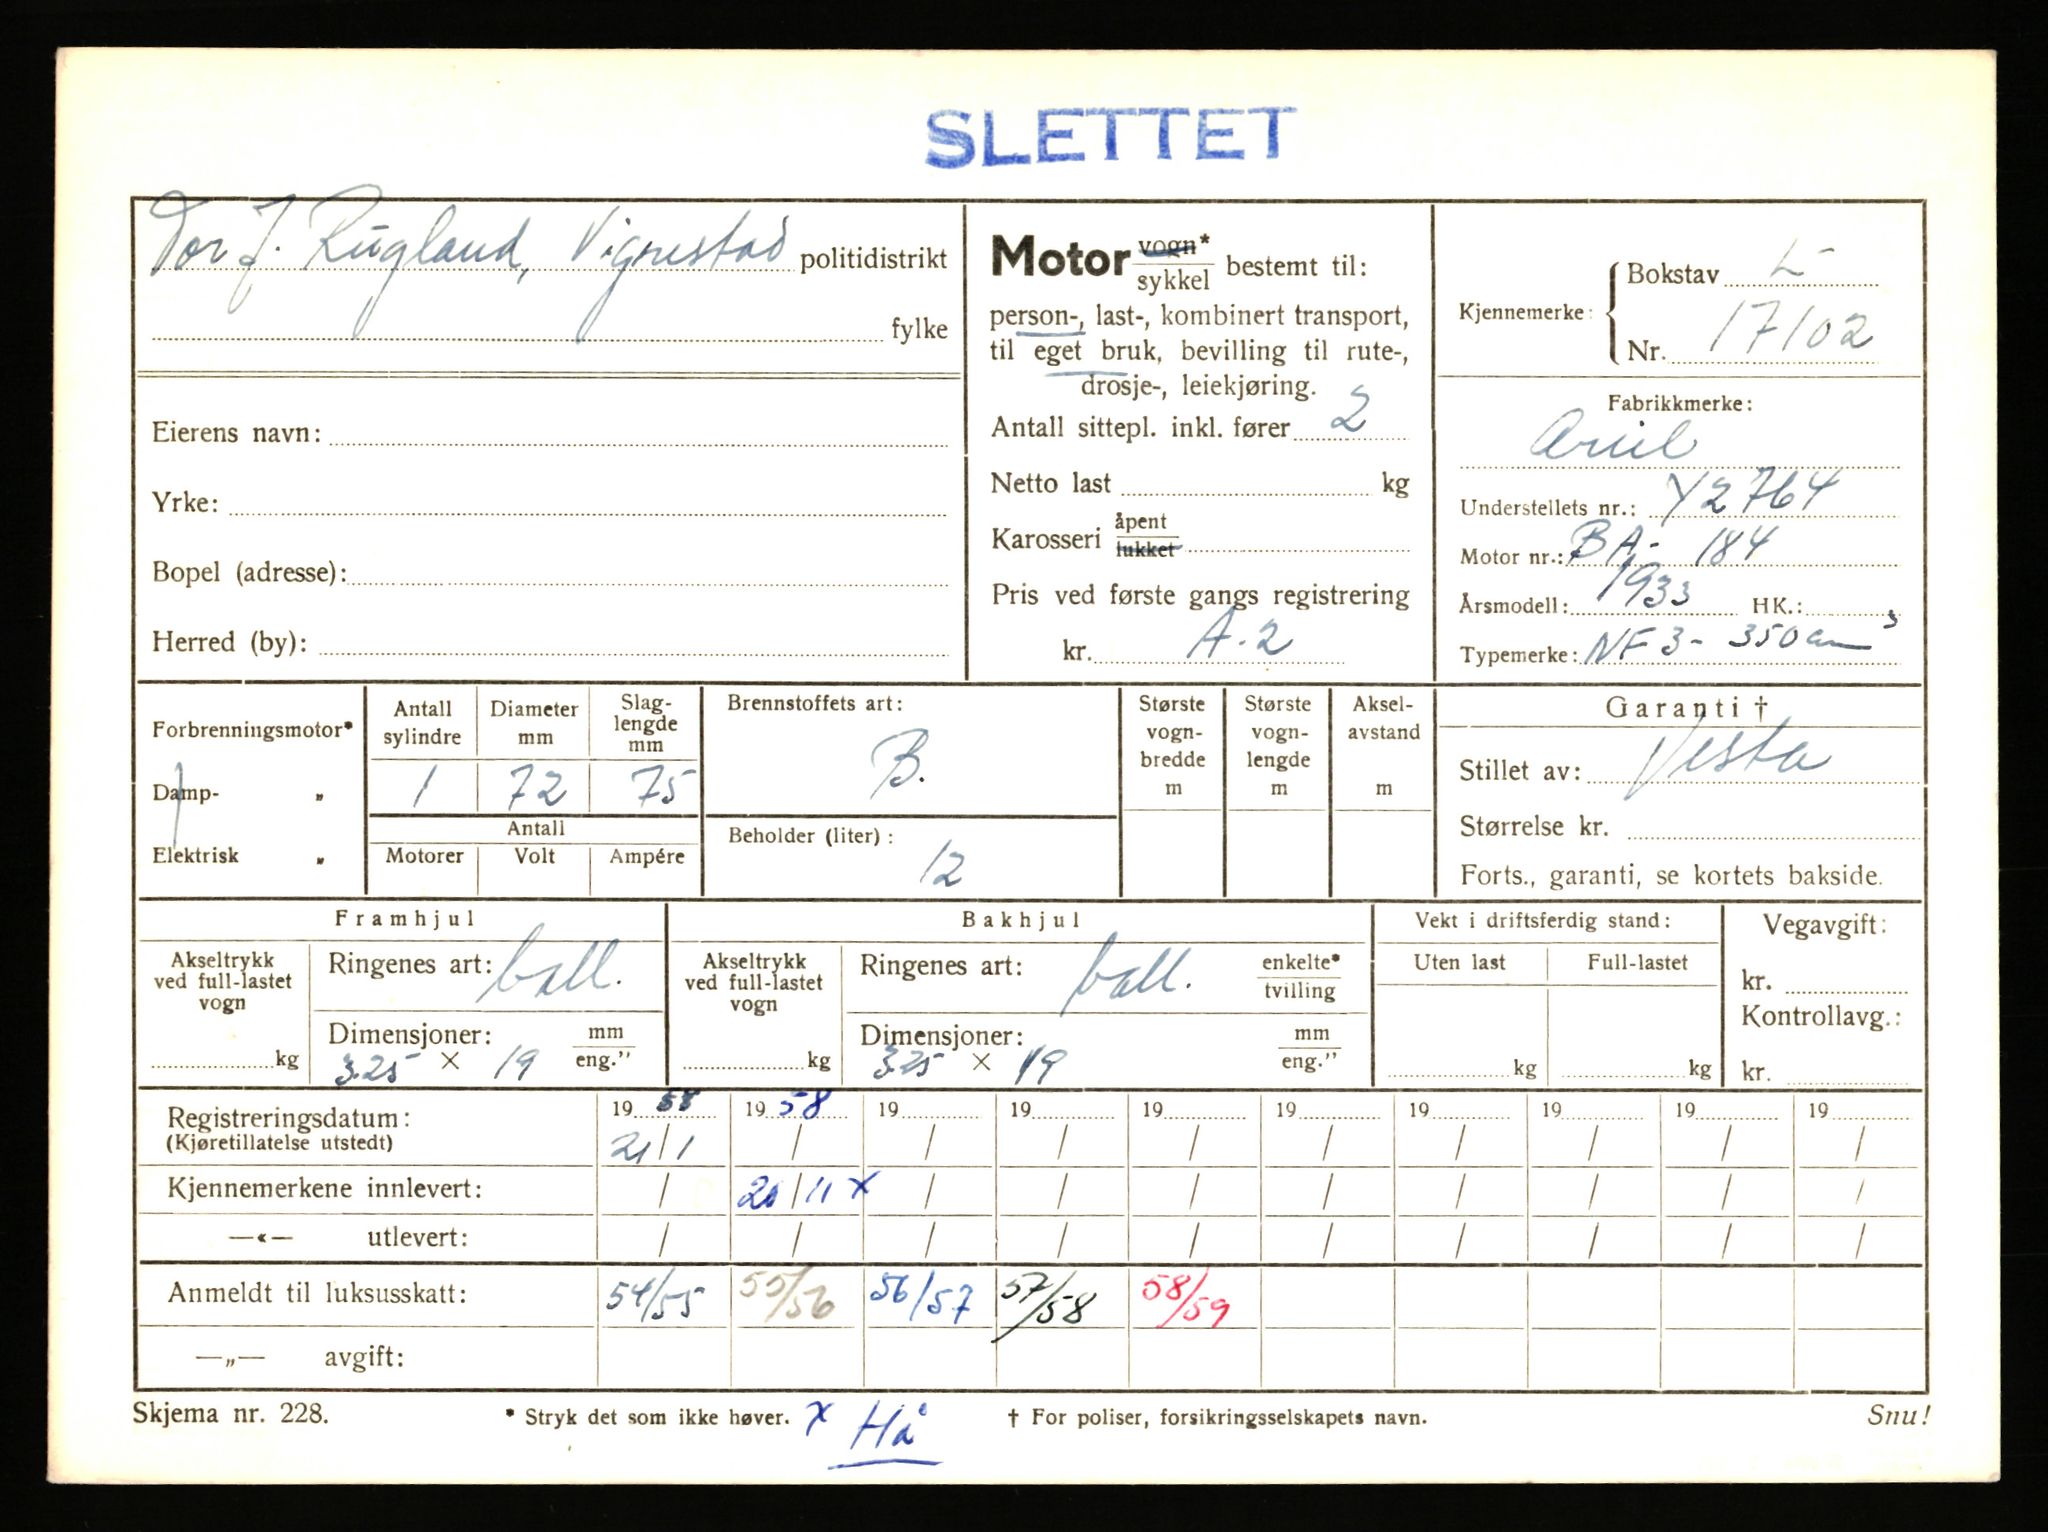 SLETTET
Tor J. Rugland, Vigrestad politidistrikt
fylke
Eierens navn:
Yrke:
Bopel (adresse):
Herred (by):
Motor vogn* sykkel bestemt til:
person-, last-, kombinert transport,
til eget bruk, bevilling til rute-,
drosje-, leiekjøring.
Antall sittepl. inkl. fører 2
Netto last kg
Karosseri åpent lukket
Pris ved første gangs registrering
kr. A.2
Kjennemerke: Bokstav L
Nr. 17102
Fabrikkmerke:
Ariel
Understellets nr.: Y2764
Motor nr.: BA- 184
Årsmodell: 1933 HK.:
Typemerke: NF3- 350 cm³
Forbrenningsmotor*
Damp- „
Elektrisk „
Antall sylindre
1
Diameter mm
72
Slaglengde mm
75
Antall
Motorer Volt Ampére
Brennstoffets art:
B.
Beholder (liter):
12
Største vognbredde m
Største vognlengde m
Akselavstand m
Garanti †
Stillet av: Vesta
Størrelse kr.
Forts., garanti, se kortets bakside.
Framhjul
Akseltrykk ved full-lastet vogn
kg
Ringenes art: ball.
Dimensjoner: mm eng."
3.25 × 19
Bakhjul
Akseltrykk ved full-lastet vogn
kg
Ringenes art: ball. enkelte* tvilling
Dimensjoner: mm eng."
3.25 × 19
Vekt i driftsferdig stand:
Uten last Full-lastet
kg kg
Vegavgift:
kr.
Kontrollavg.:
kr.
Registreringsdatum: 19 19 58 19 19 19 19 19 19 19 19
(Kjøretillatelse utstedt) 21/1 / / / / / / / / /
Kjennemerkene innlevert: / /11 x / / / / / / / /
—«— utlevert: / / / / / / / / / /
Anmeldt til luksusskatt: 54/55 55/56 56/57 57/58 58/59
—„— avgift:
Skjema nr. 228. * Stryk det som ikke høver. x Hå † For poliser, forsikringsselskapets navn. Snu!